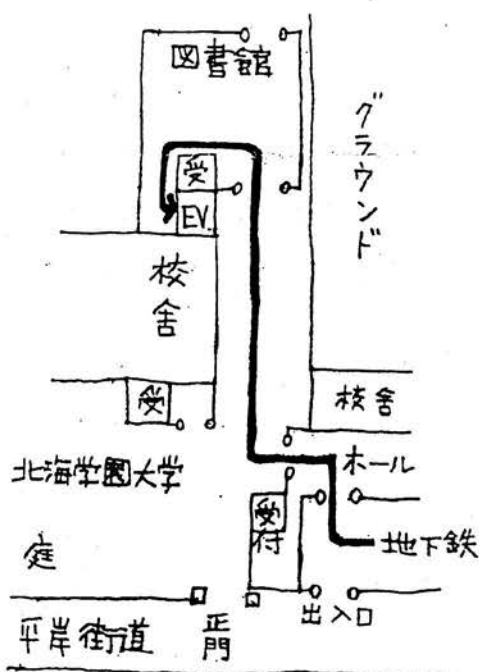 図書館
グラウンド
受
EV.
校舎
受
校舎
北海学園大学
ホール
受付
庭
地下鉄
出入口
平岸街道
正門